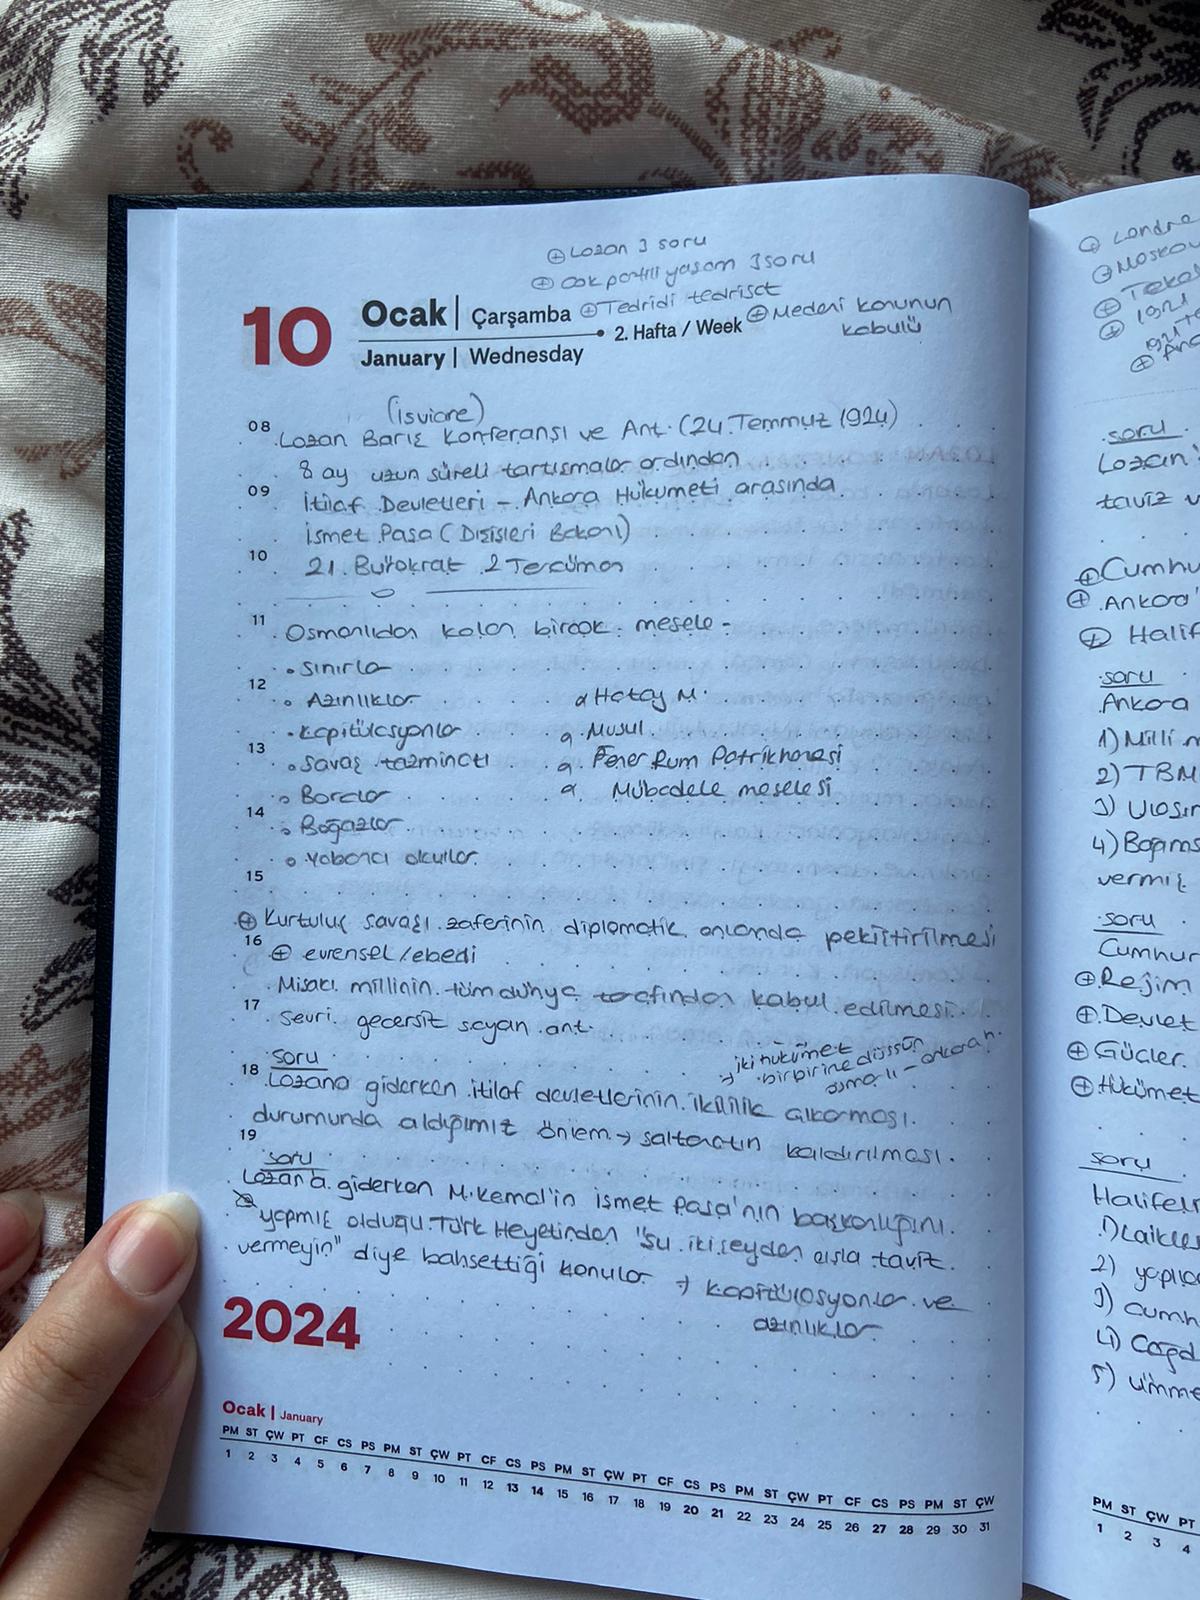 ⊕ Lozan 3 soru
⊕ Çok partili yaşam 3 soru
⊕ Tedridi tedrisat
⊕ Medeni kanunun
kabulü
10 Ocak | Çarşamba
2. Hafta / Week
January | Wednesday
(isviçre)
08 Lozan Barış Konferansı ve Ant. (24 Temmuz 1924)
8 ay uzun süreli tartışmalar ardından
09 İtilaf Devletleri - Ankara Hükumeti arasında
İsmet Paşa (Dışişleri Bakanı)
10 21 Bürokrat 2 Tercüman
11 Osmanlıdan kalan birçok mesele -
• Sınırlar
12 • Azınlıklar
Hatay M.
• Kapitülasyonlar
Musul
13 • Savaş tazminatı
Fener Rum Patrikhanesi
• Borçlar
Mübadele meselesi
14 • Boğazlar
• Yabancı okullar
15
⊕ Kurtuluş savaşı zaferinin diplomatik anlamda pekiştirilmesi
16 ⊕ evrensel/ebedi
Misakı millinin tüm dünya tarafından kabul edilmesi.
17 Sevri geçersiz sayan ant.
soru
→ iki hükümet
birbirine düşsün
osmanlı - ankara
18 Lozana giderken itilaf devletlerinin ikilik çıkarması
durumunda aldığımız önlem → saltanatın kaldırılması.
19 soru
Lozan'a giderken M.Kemal'in İsmet Paşa'nın başkanlığını
yapmış olduğu Türk Heyetinden "Şu iki şeyden asla taviz
vermeyin" diye bahsettiği konular → kapitülasyonlar ve
azınlıklar
2024
Ocak | January
PM ST ÇW PT CF CS PS PM ST ÇW PT CF CS PS PM ST ÇW PT CF CS PS PM ST ÇW PT CF CS PS PM ST ÇW
1 2 3 4 5 6 7 8 9 10 11 12 13 14 15 16 17 18 19 20 21 22 23 24 25 26 27 28 29 30 31
⊕ Londra
⊕ Moskov
⊕ 1921
soru
Lozan'
taviz v
⊕ Cumhu
⊕ Ankara'
⊕ Halif
soru
Ankara
1) Milli m
2) TBM
3) Ulaşım
4) Bağıms
vermiş
soru
Cumhur
⊕ Rejim
⊕ Devlet
⊕ Güçler
⊕ Hükümet
soru
Halifeli
1) Laikleş
2) yapıla
3) cumh
4) Çağd
5) ümme
PM ST ÇW PT
1 2 3 4